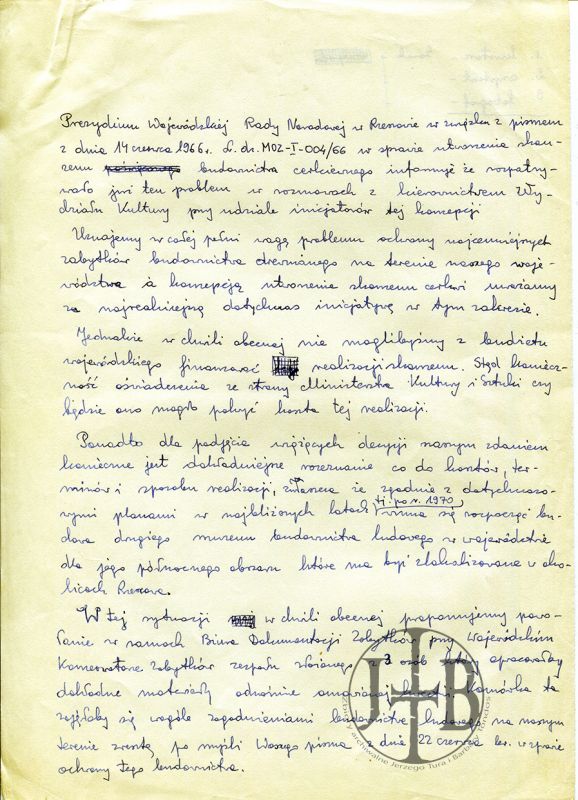 Prezydium Wojewódzkiej Rady Narodowej w Rzeszowie w związku z pismem
z dnia 14 czerwca 1966 r. L. dz. MOZ-I-004/66 w sprawie utworzenia skan-
senu budownictwa cerkiewnego informuje że rozpatry-
wało już ten problem w rozmowach z kierownictwem Wy-
działu Kultury przy udziale inicjatorów tej koncepcji
Uznajemy w całej pełni wagę problemu ochrony najcenniejszych
zabytków budownictwa drewnianego na terenie naszego woje-
wództwa a koncepcję utworzenia skansenu cerkwi uważamy
za najrealniejszą dotychczas inicjatywę w tym zakresie.
Jednakże w chwili obecnej nie moglibyśmy z budżetu
wojewódzkiego finansować realizacji skansenu. Stąd koniecz-
ność oświadczenia ze strony Ministerstwa Kultury i Sztuki czy
będzie ono mogło pokryć koszta tej realizacji.
Ponadto dla podjęcia wiążących decyzji naszym zdaniem
konieczne jest dokładniejsze rozeznanie co do kosztów, ter-
minów i sposobu realizacji, zwłaszcza że zgodnie z dotychczaso-
wymi planami w najbliższych latach tj. po r. 1970 winna się rozpocząć bu-
dowa drugiego muzeum budownictwa ludowego w województwie
dla jego północnego obszaru które ma być zlokalizowane w oko-
licach Rzeszowa.
W tej sytuacji w chwili obecnej proponujemy powo-
łanie w ramach Biura Dokumentacji Zabytków przy Wojewódzkim
Konserwatorze Zabytków zespołu złożonego z 3 osób który opracowałby
dokładne materiały odnośnie Komórka ta
zajęłaby się w ogóle zagadnieniami budownictwa ludowego na naszym
terenie zresztą po myśli Waszego pisma z dnia 22 czerwca br. w sprawie
ochrony tego budownictwa.
JTB
archiwalne Jerzego Tura i Barbary Tondos